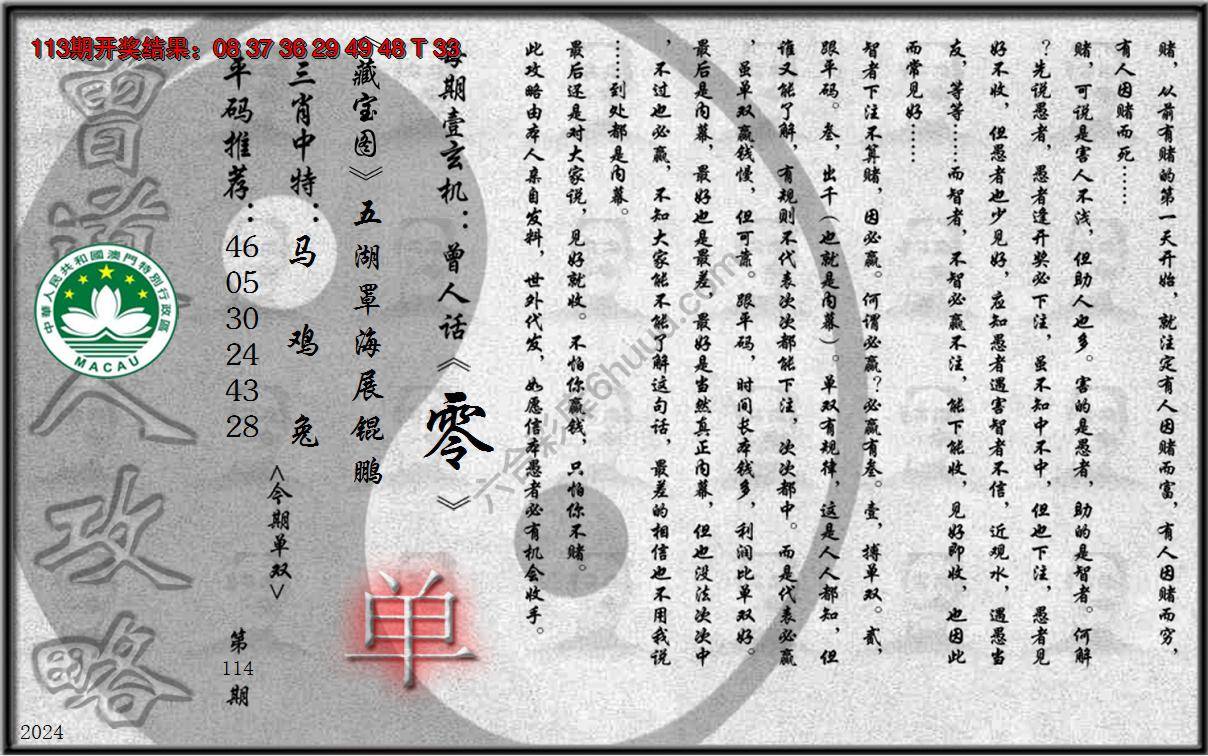 113期开奖结果：08 37 36 29 49 48 T 33
赌，从前有赌的第一天开始，就注定有人因赌而富，有人因赌而穷，
有人因赌而死……
赌，可说是害人不浅，但助人也多。害的是愚者，助的是智者。何解
？先说愚者，愚者逢开奖必下注，虽不知中不中，但也下注，愚者见
好不收，但愚者也少见好，应知愚者遇害智者不信，近观水，遇愚当
友，等等……而智者，不智必赢不注，能下能收，见好即收，也因此
而常见好……
智者下注不算赌，因必赢。何谓必赢？必赢有叁。壹，搏单双。贰，
跟平码。叁，出千（也就是内幕）。单双有规律，这是人人都知，但
谁又能了解，有规则不代表次次都能下注，次次都中。而是代表必赢
，虽单双赢钱慢，但可靠。跟平码，时间长本钱多，利润比单双好。
最后是内幕，最好也是最差，最好是当然真正内幕，但也没法次次中
，不过也必赢，不知大家能不能了解这句话，最差的相信也不用我说
……到处都是内幕。
最后还是对大家说，见好就收。不怕你赢钱，只怕你不赌。
此攻略由本人亲自发料，世外代发，如愿信本愚者必有机会收手。
每期壹玄机：曾人话《零》
《藏宝图》五湖罩海展锟鹏
三肖中特：马 鸡 兔
<今期单双>
单
平码推荐：46 05 30 24 43 28
第114期
曾道人攻略
中華人民共和國澳門特別行政區
MACAU
六合彩库6huuu.com
2024